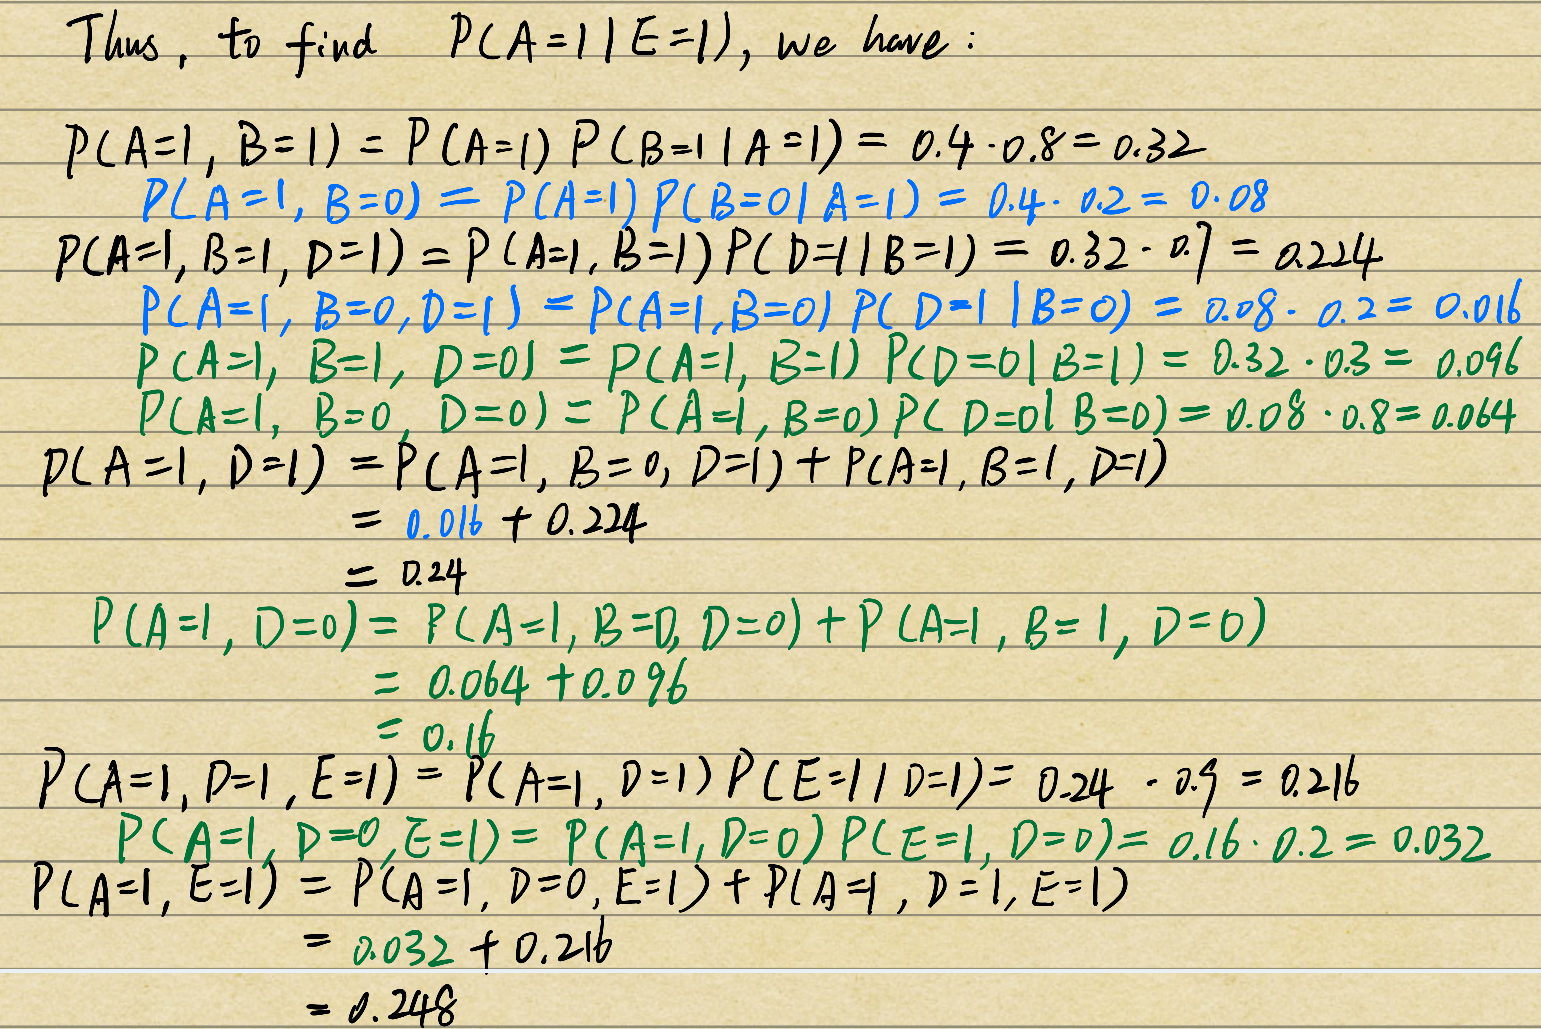 Thus, to find P(A=1|E=1), we have:
P(A=1, B=1) = P(A=1) P(B=1|A=1) = 0.4 · 0.8 = 0.32
P(A=1, B=0) = P(A=1) P(B=0|A=1) = 0.4 · 0.2 = 0.08
P(A=1, B=1, D=1) = P(A=1, B=1) P(D=1|B=1) = 0.32 · 0.7 = 0.224
P(A=1, B=0, D=1) = P(A=1, B=0) P(D=1|B=0) = 0.08 · 0.2 = 0.016
P(A=1, B=1, D=0) = P(A=1, B=1) P(D=0|B=1) = 0.32 · 0.3 = 0.096
P(A=1, B=0, D=0) = P(A=1, B=0) P(D=0|B=0) = 0.08 · 0.8 = 0.064
P(A=1, D=1) = P(A=1, B=0, D=1) + P(A=1, B=1, D=1)
= 0.016 + 0.224
= 0.24
P(A=1, D=0) = P(A=1, B=0, D=0) + P(A=1, B=1, D=0)
= 0.064 + 0.096
= 0.16
P(A=1, D=1, E=1) = P(A=1, D=1) P(E=1|D=1) = 0.24 · 0.9 = 0.216
P(A=1, D=0, E=1) = P(A=1, D=0) P(E=1, D=0) = 0.16 · 0.2 = 0.032
P(A=1, E=1) = P(A=1, D=0, E=1) + P(A=1, D=1, E=1)
= 0.032 + 0.216
= 0.248